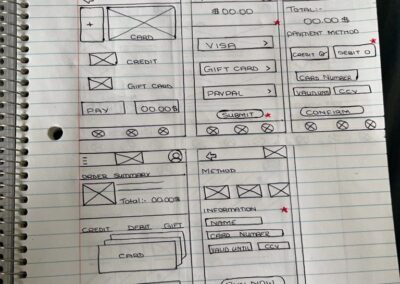 +
CARD
CREDIT
GIFT CARD
PAY 00.00$
$00.00
VISA >
GIFT CARD >
PAYPAL >
SUBMIT
TOTAL:-
00.00$
PAYMENT METHOD
CREDIT DEBIT O
CARD NUMBER
CCV
CONFIRM
ORDER SUMMARY
Total:- 00.00$
CREDIT DEBIT GIFT
CARD
METHOD
INFORMATION
NAME
CARD NUMBER
VALID UNTIL CCV